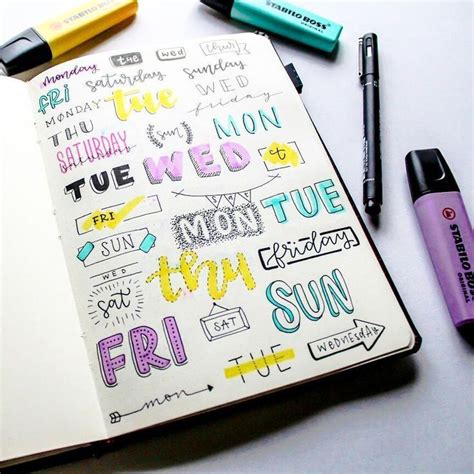 STABILO BOSS
STABILO BOSS
ORIGINAL
monday tue wed thur
FRI saturday sunday
MONDAY tue WED
THU friday
SATURDAY sun MON
TUE WED t
FRI MON TUE
SUN friday
WED thu
sat SAT SUN
FRI TUE WEDNESDAY
mon
STABILO BOSS
ORIGINAL